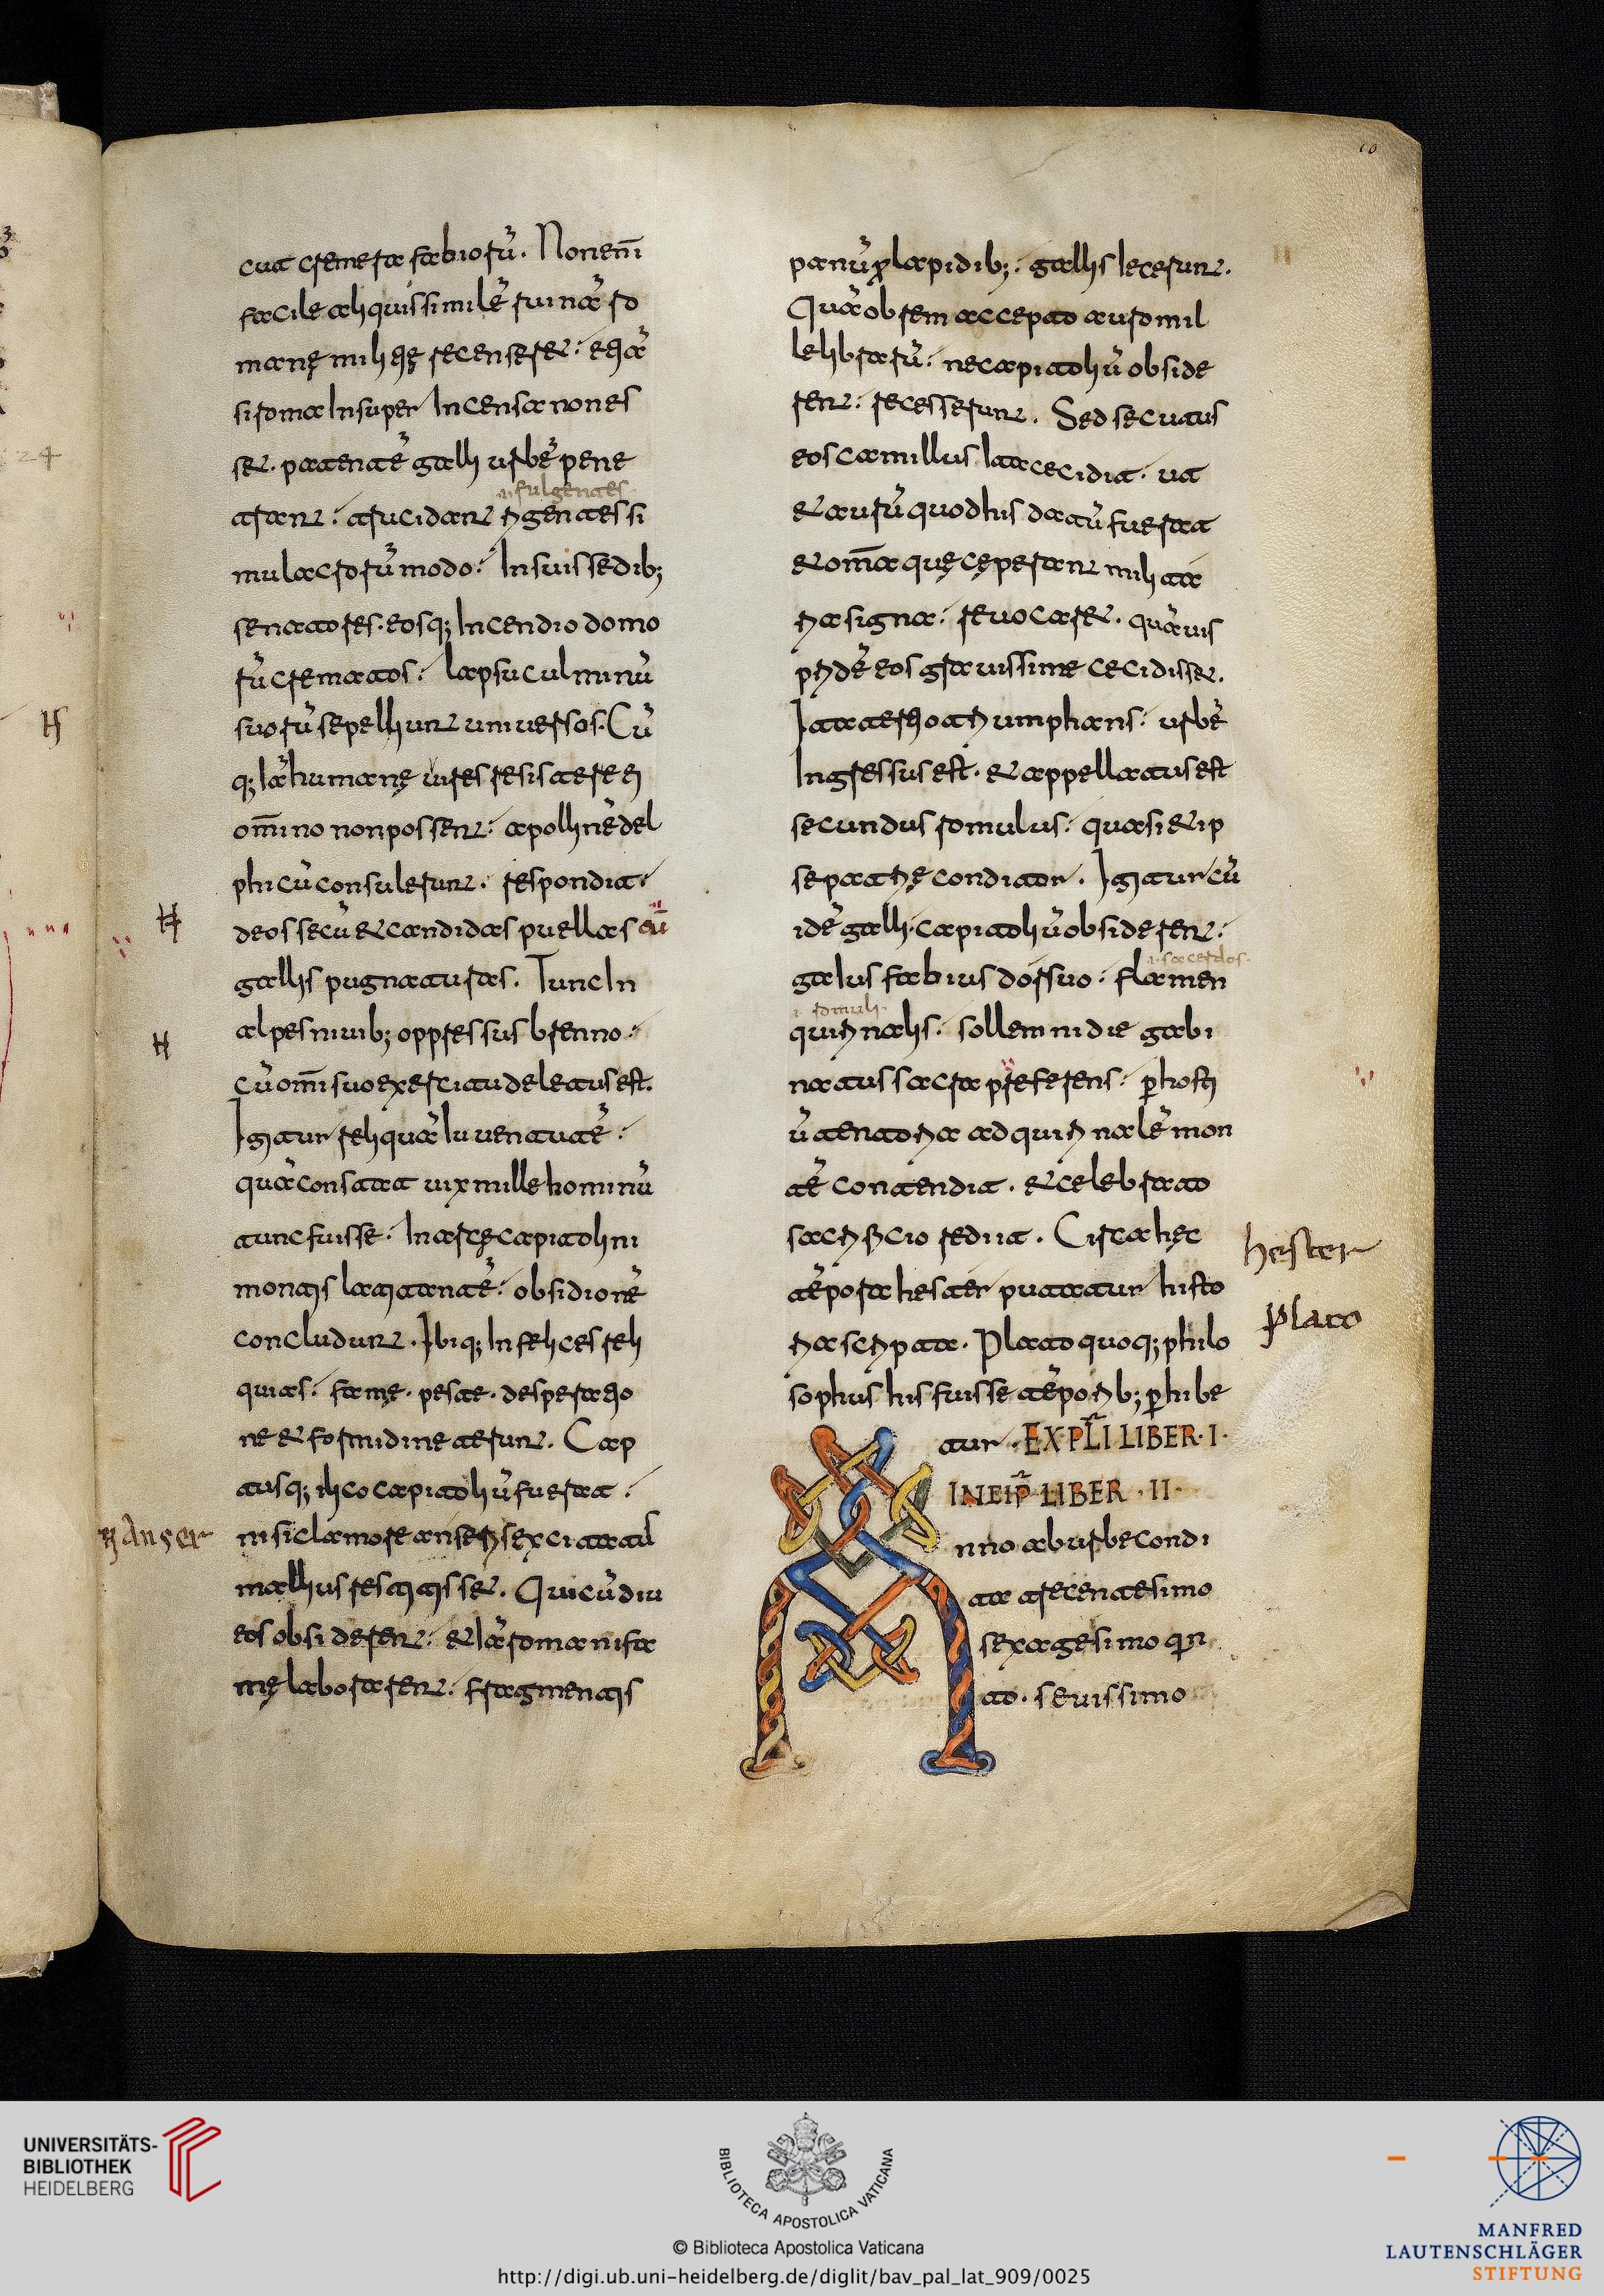 cut cremera fabiorū. Non enī
facile aliqui similē ruinā ro
manę militię recenseret; etiā
si roma Insuper Incensa non es
set. patentē galli urbē pene
.i. fulgentes
trant; trucidant rigentes si
mulacrorū modo; Insuis sedib;
senatores. eosq; Incendio domo
rū crematos; lapsu culminū
suorū sepeliunt universos. Cū
q; Iā humanę vires resistere ei
om̄ino non possent; apollinē del
phicū consulerunt. respondit;
deos secū et candidas puellas cū
gallis pugnaturas. Tunc In
alpes nivib; oppressus brenno;
cū om̄i suo exercitu deletus est.
Igitur reliquā Iuventutē;
quā constat vix mille hominū
tunc fuisse. In arcę capitolini
montis latitantē; obsidionē
concludunt. Ibiq; Infelices reli
quias; famę. peste. desperatio
ne et formidine terunt. Cap
tusq; ilico capitoliū fuerat;
nisi clamore anseris excitatus
mallius restitisset. Qui cū diu
eos obsiderent; et Iā romani fa
mę laborarent; fragmentis
Anser
panū p lapidib; gallis Iecerunt.
Quā ob rem accepto auro mil
le librarū; ne capitoliū obside
rent; recesserunt. Sed secutus
eos camillus Ita cecidit; ut
et aurū quod his datū fuerat
et om̄ia quę cęperant milita
ria signa; revocaret. quāvis
pridē eos gravissime cecidisset.
Ita tertio triumphans; urbē
Ingressus est. et appellatus est
secundus romulus; quasi et ip
se patrię conditor. Igitur cū
idē galli capitoliū obsiderent;
.i. sacerdos.
galus fabius dorsuo; flamen
.i. romuli.
quirinalis; sollemni die gabi
natus sacra preferens; p hosti
ū tentoria ad quirinalē mon
tē contendit. et celebrato
sacrificio rediit. Circa hęc
tēpora hester putatur histo
ria scripta. Plato quoq; philo
sophus his fuisse tēporib; phibe
tur. EXPLI LIBER. I.
INCIP LIBER. II.
A nno ab urbe condi
ta trecentesimo
sexagesimo qr
to. sevissimo
hester
Plato
UNIVERSITÄTS-
BIBLIOTHEK
HEIDELBERG
BIBLIOTECA APOSTOLICA VATICANA
© Biblioteca Apostolica Vaticana
http://digi.ub.uni-heidelberg.de/diglit/bav_pal_lat_909/0025
MANFRED
LAUTENSCHLÄGER
STIFTUNG